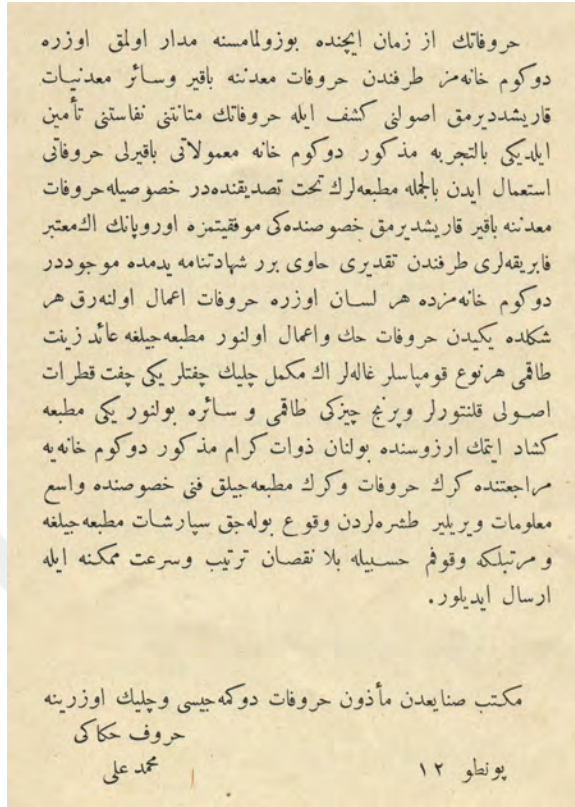 حروفاتك از زمان ایچنده بوزولمامسنه مدار اولمق اوزره
دوكوم خانه‌مز طرفندن حروفات معدننه باقیر وسائر معدنیات
قاریشددیرمق اصولنی كشف ایله حروفاتك متانتنی نفاستنی تأمین
ایلدیكی بالتجربه مذكور دوكوم خانه معمولاتی باقیرلی حروفاتی
استعمال ایدن بالجمله مطبعه‌لرك تحت تصدیقنده‌در خصوصیله حروفات
معدننه باقیر قاریشدیرمق خصوصنده‌كی موفقیتمزه اوروپانك اك معتبر
فابریقه‌لری طرفندن تقدیری حاوی برر شهادتنامه یدمده موجوددر
دوكوم خانه‌مزده هر لسان اوزره حروفات اعمال اولنه‌رق هر
شكلده یكیدن حروفات حك واعمال اولنور مطبعه‌جیلغه عائد زینت
طاقمی هرنوع قومپاسلر غاله‌لر اك مكمل چلیك چفتلر یكی چفت قطرات
اصولی قلنتورلر وپرنج چیزكی طاقمی و سائره بولنور یكی مطبعه
كشاد ایتمك ارزوسنده بولنان ذوات كرام مذكور دوكوم خانه‌یه
مراجعتنده كرك حروفات وكرك مطبعه‌جیلق فنی خصوصنده واسع
معلومات ویریلیر طشره‌لردن وقوع بوله‌جق سپارشات مطبعه‌جیلغه
و مرتبلكه وقوفم حسبیله بلا نقصان ترتیب وسرعت ممكنه ایله
ارسال ایدیلور.
مكتب صنایعدن مأذون حروفات دوكمه‌جیسی وچلیك اوزرینه
حروف حكاكی
پونطو ١٢ محمد علی